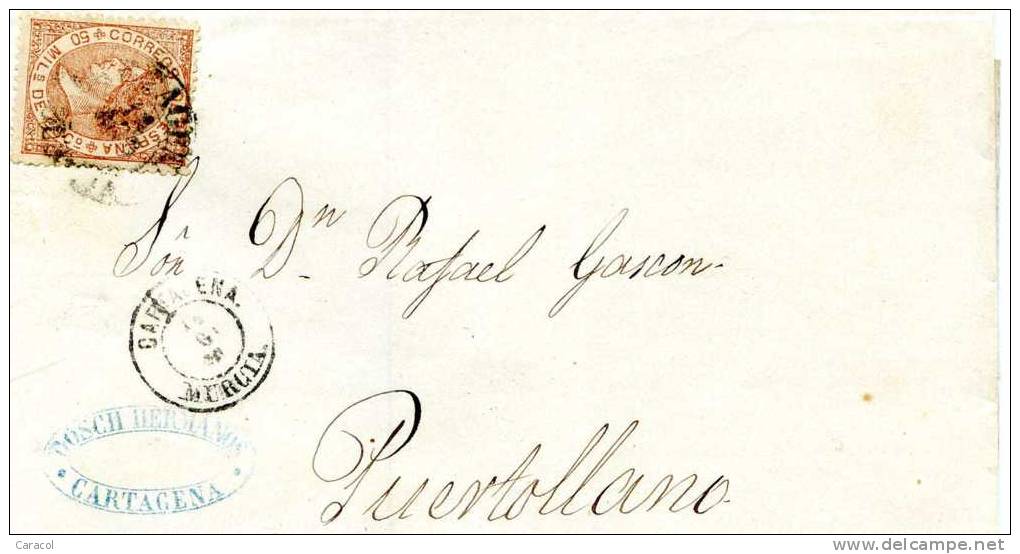 CORREOS
50 MIL.S DE
ESPAÑA
Sôr Dn Rafael Gascon.
CARTAGENA.
MURCIA.
BOSCH HERMANOS
CARTAGENA
Puertollano
Caracol
www.delcampe.net